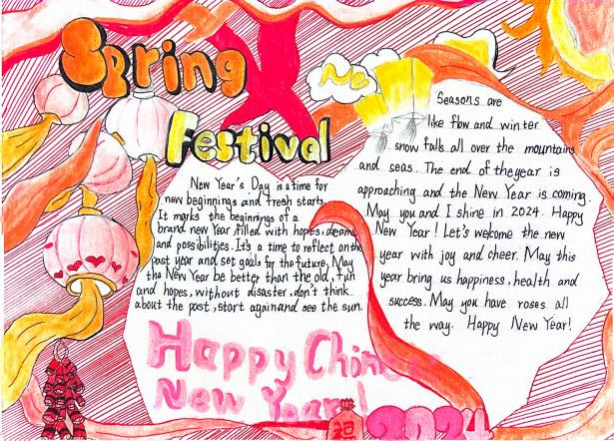 Spring
Festival
New Year's Day is a time for
new beginnings and fresh starts.
It marks the beginnings of a
brand new Year, filled with hopes, dreams
and possibilities. It's a time to reflect on the
past year and set goals for the future, May
the New Year be better than the old, fun
and hopes, without disaster, don't think
about the post, start again and see the sun.
Happy Chin
New Year!
Seasons are
like flow and winter
snow falls all over the mountains
and seas. The end of the year is
approaching and the New Year is coming.
May you and I shine in 2024. Happy
New Year! Let's welcome the new
year with joy and cheer. May this
year bring us happiness, health and
success. May you have roses all
the way. Happy New Year!
2024